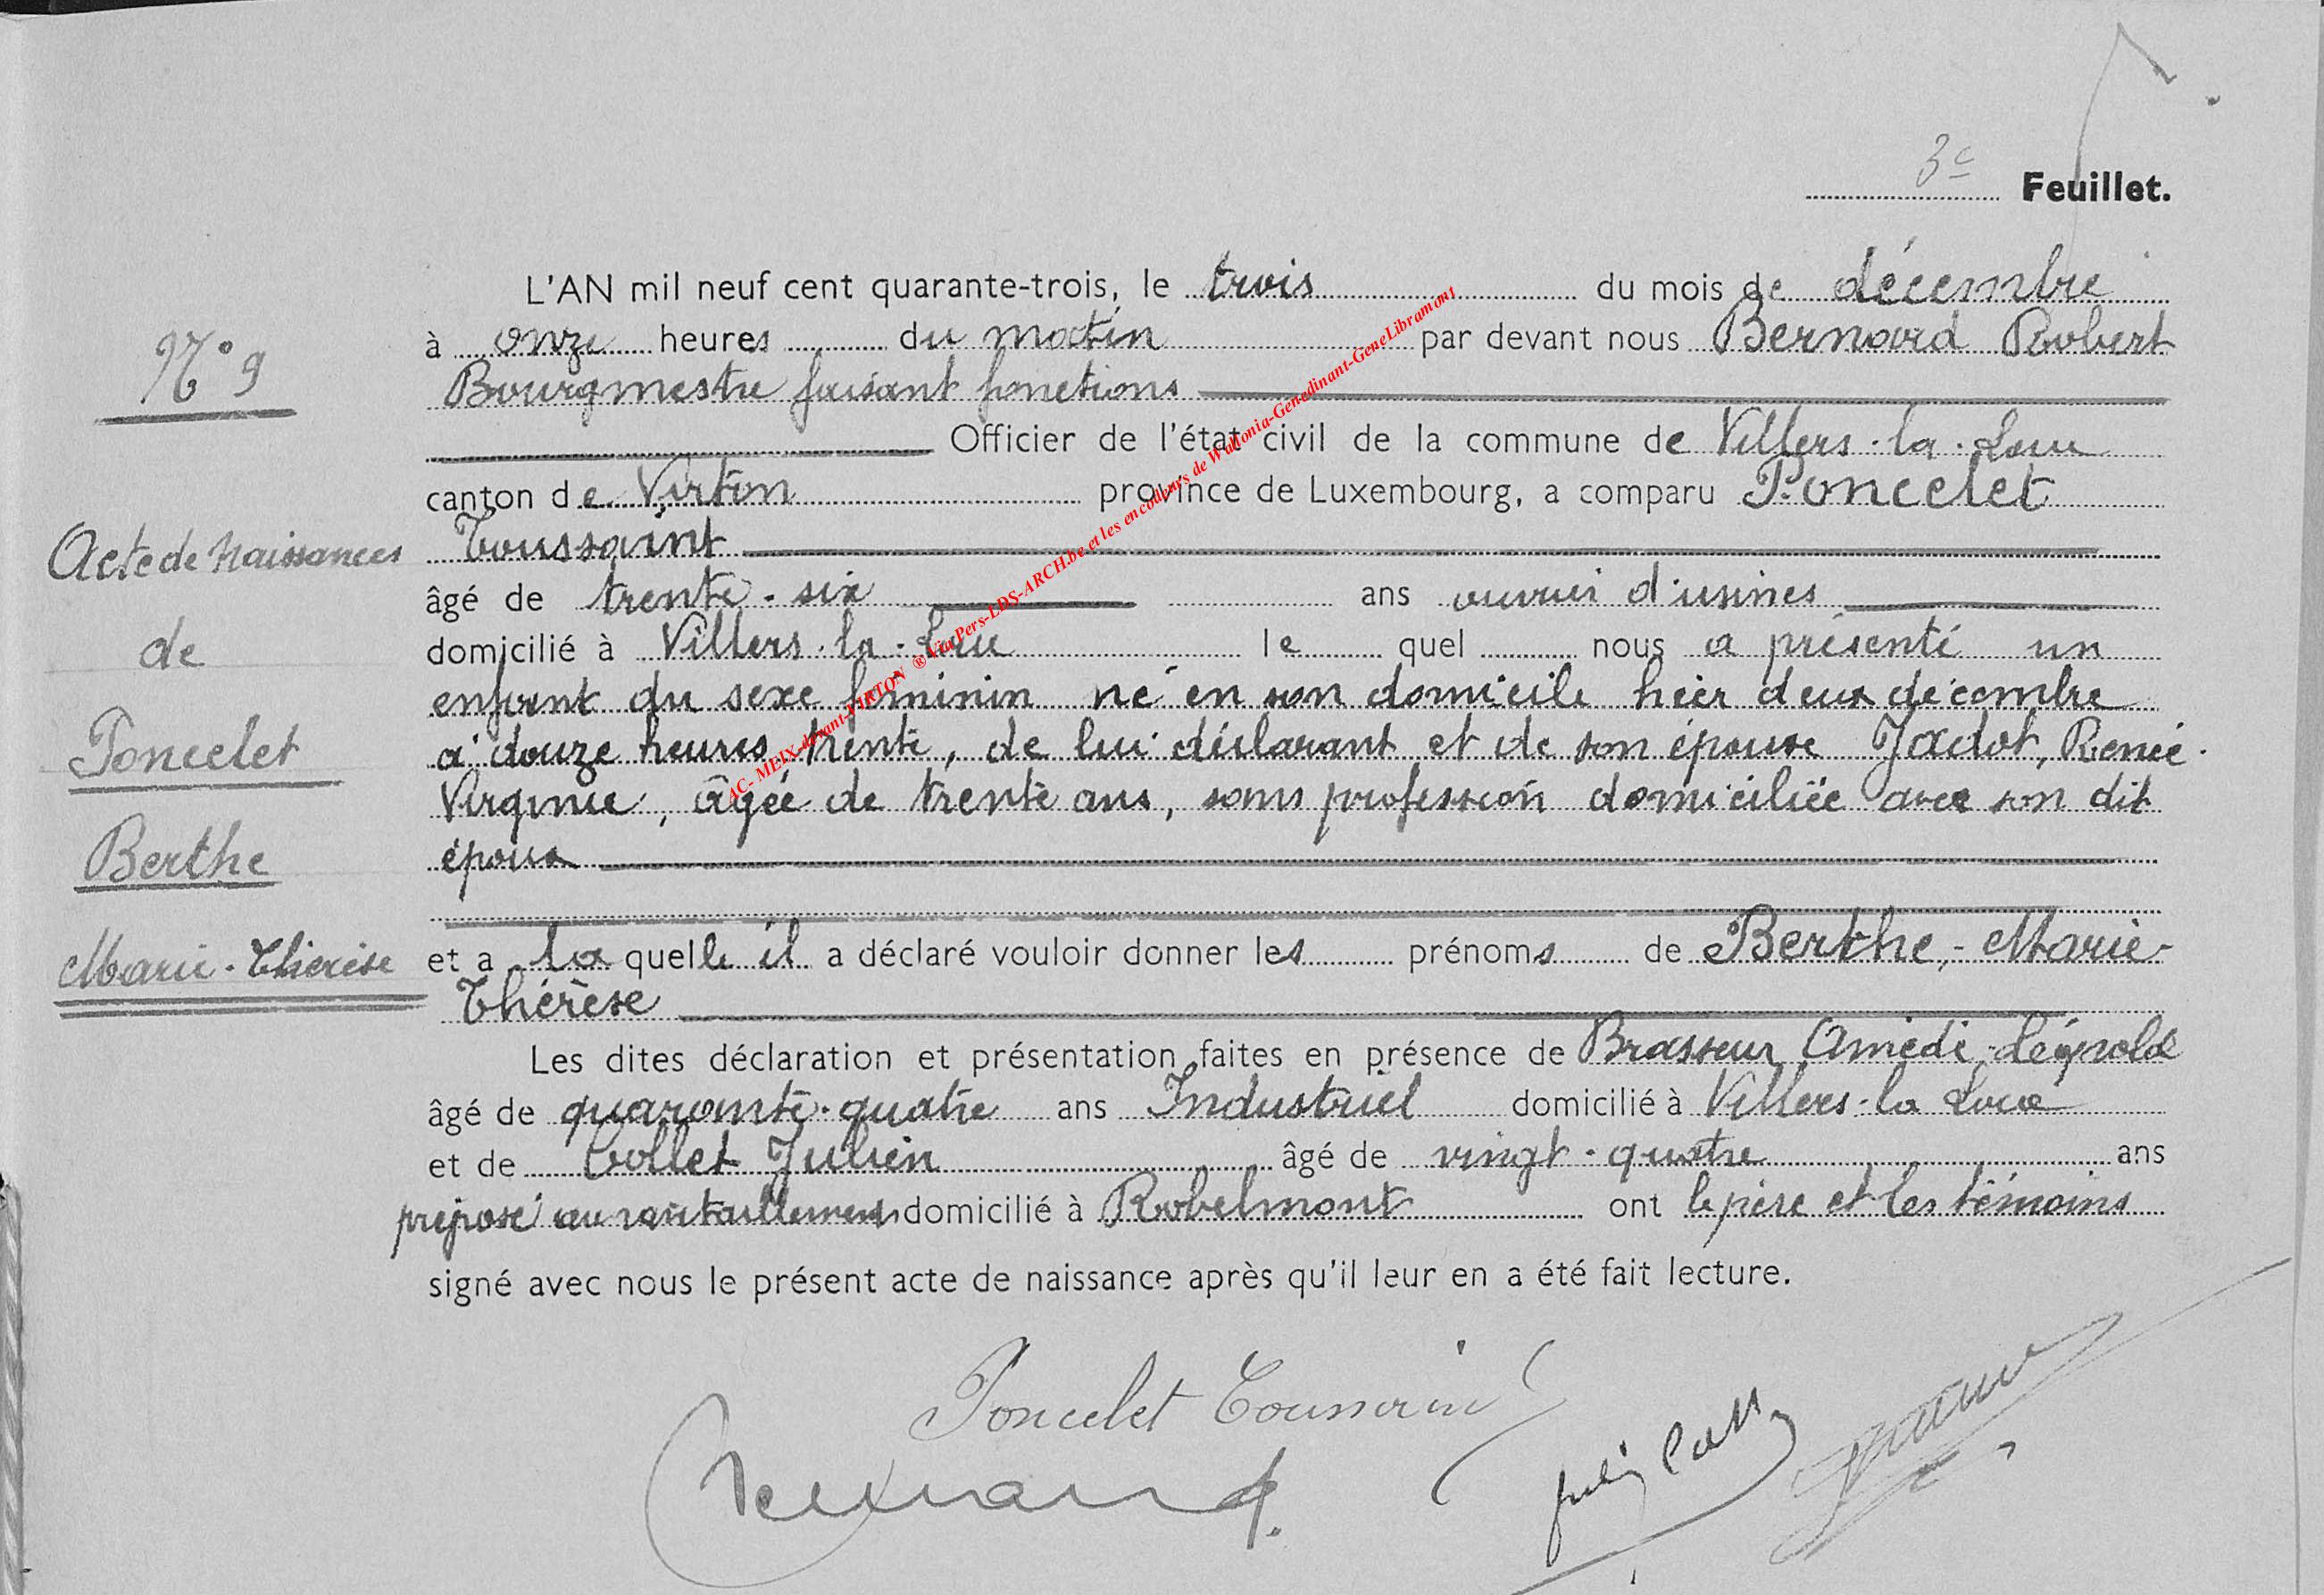 3e Feuillet.
L'AN mil neuf cent quarante-trois, le trois du mois de décembre
à onze heures du matin par devant nous Bernard Robert
N° 9
Bourgmestre faisant fonctions
Officier de l'état civil de la commune de Villers-la-Loue
canton de Virton province de Luxembourg, a comparu Poncelet
Acte de Naissances
Toussaint
âgé de trente-six ans ouvrier d'usines
de
domicilié à Villers-la-Loue le quel nous a présenté un
enfant du sexe féminin né en son domicile hier deux décembre
Poncelet
à douze heures trente, de lui déclarant et de son épouse Jadot, Renée
Virginie, âgée de trente ans, sans profession domiciliée avec son dit
Berthe
époux
Marie-Thérèse
et a la quelle il a déclaré vouloir donner les prénoms de Berthe,-Marie-
Thérèse
Les dites déclaration et présentation faites en présence de Brasseur Amédé-Léopold
âgé de quarante-quatre ans Industriel domicilié à Villers-la Loue
et de Collet Julien âgé de vingt-quatre ans
préposé au ravitaillement domicilié à Robelmont ont le père et les témoins
signé avec nous le présent acte de naissance après qu'il leur en a été fait lecture.
Poncelet Toussaint
AC- MEIX-devant-VIRTON ® Via Pers-LDS-ARCH.be et les encodeurs de Wallonia-Genedinant-GeneLibramont